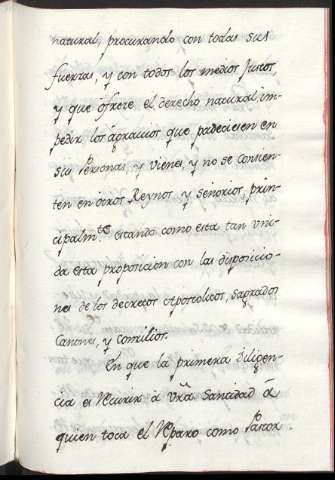 natural, procurando con todas sus
fuerzas, y con todos los medios justos,
y que ofrece el derecho natural im-
pedir los agravios que padeciesen en
sus Personas, y vienes, y no se consien-
ten en otros Reynos y señorios prin-
cipalmte estando como esta tan vni-
da esta proposicion con las disposicio-
nes de los decretos Apostolicos, sagrados
Canones, y Concilios.
En que la primera diligen-
cia es recurir à Vrā Santidad â
quien toca el Reparo como Pastor